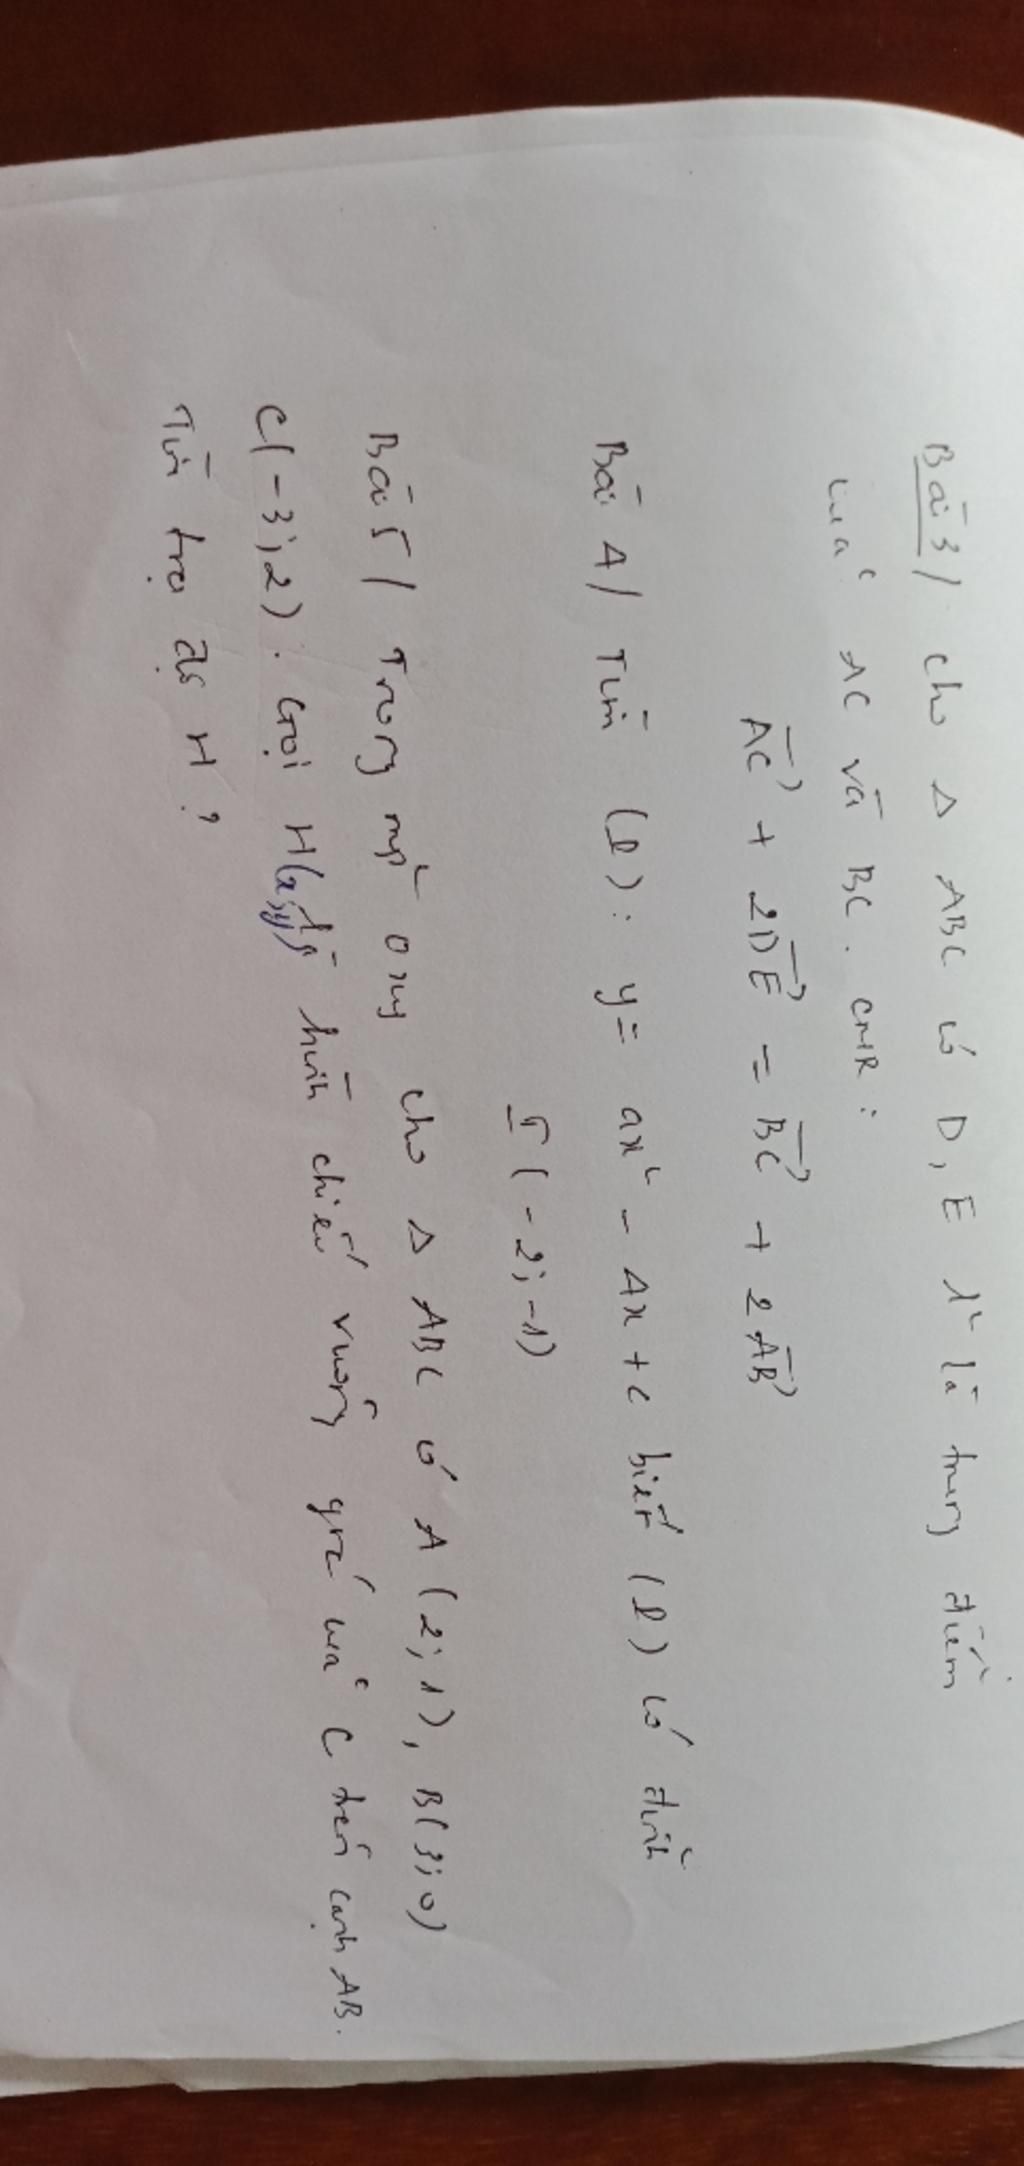 Bài 3/ cho Δ ABC có D, E l² là trung điểm
của AC và BC. CMR:
AC→ + 2DE→ = BC→ + 2AB→
Bài 4/ Tìm (P): y = ax² - 4x + c biết (P) có đỉnh
I(-2; -1)
Bài 5/ Trong mp² Oxy cho Δ ABC có A(2; 1), B(3; 0)
C(-3; 2). Gọi H(x;y) là hình chiếu vuông góc của C trên cạnh AB.
Tìm tọa độ H?